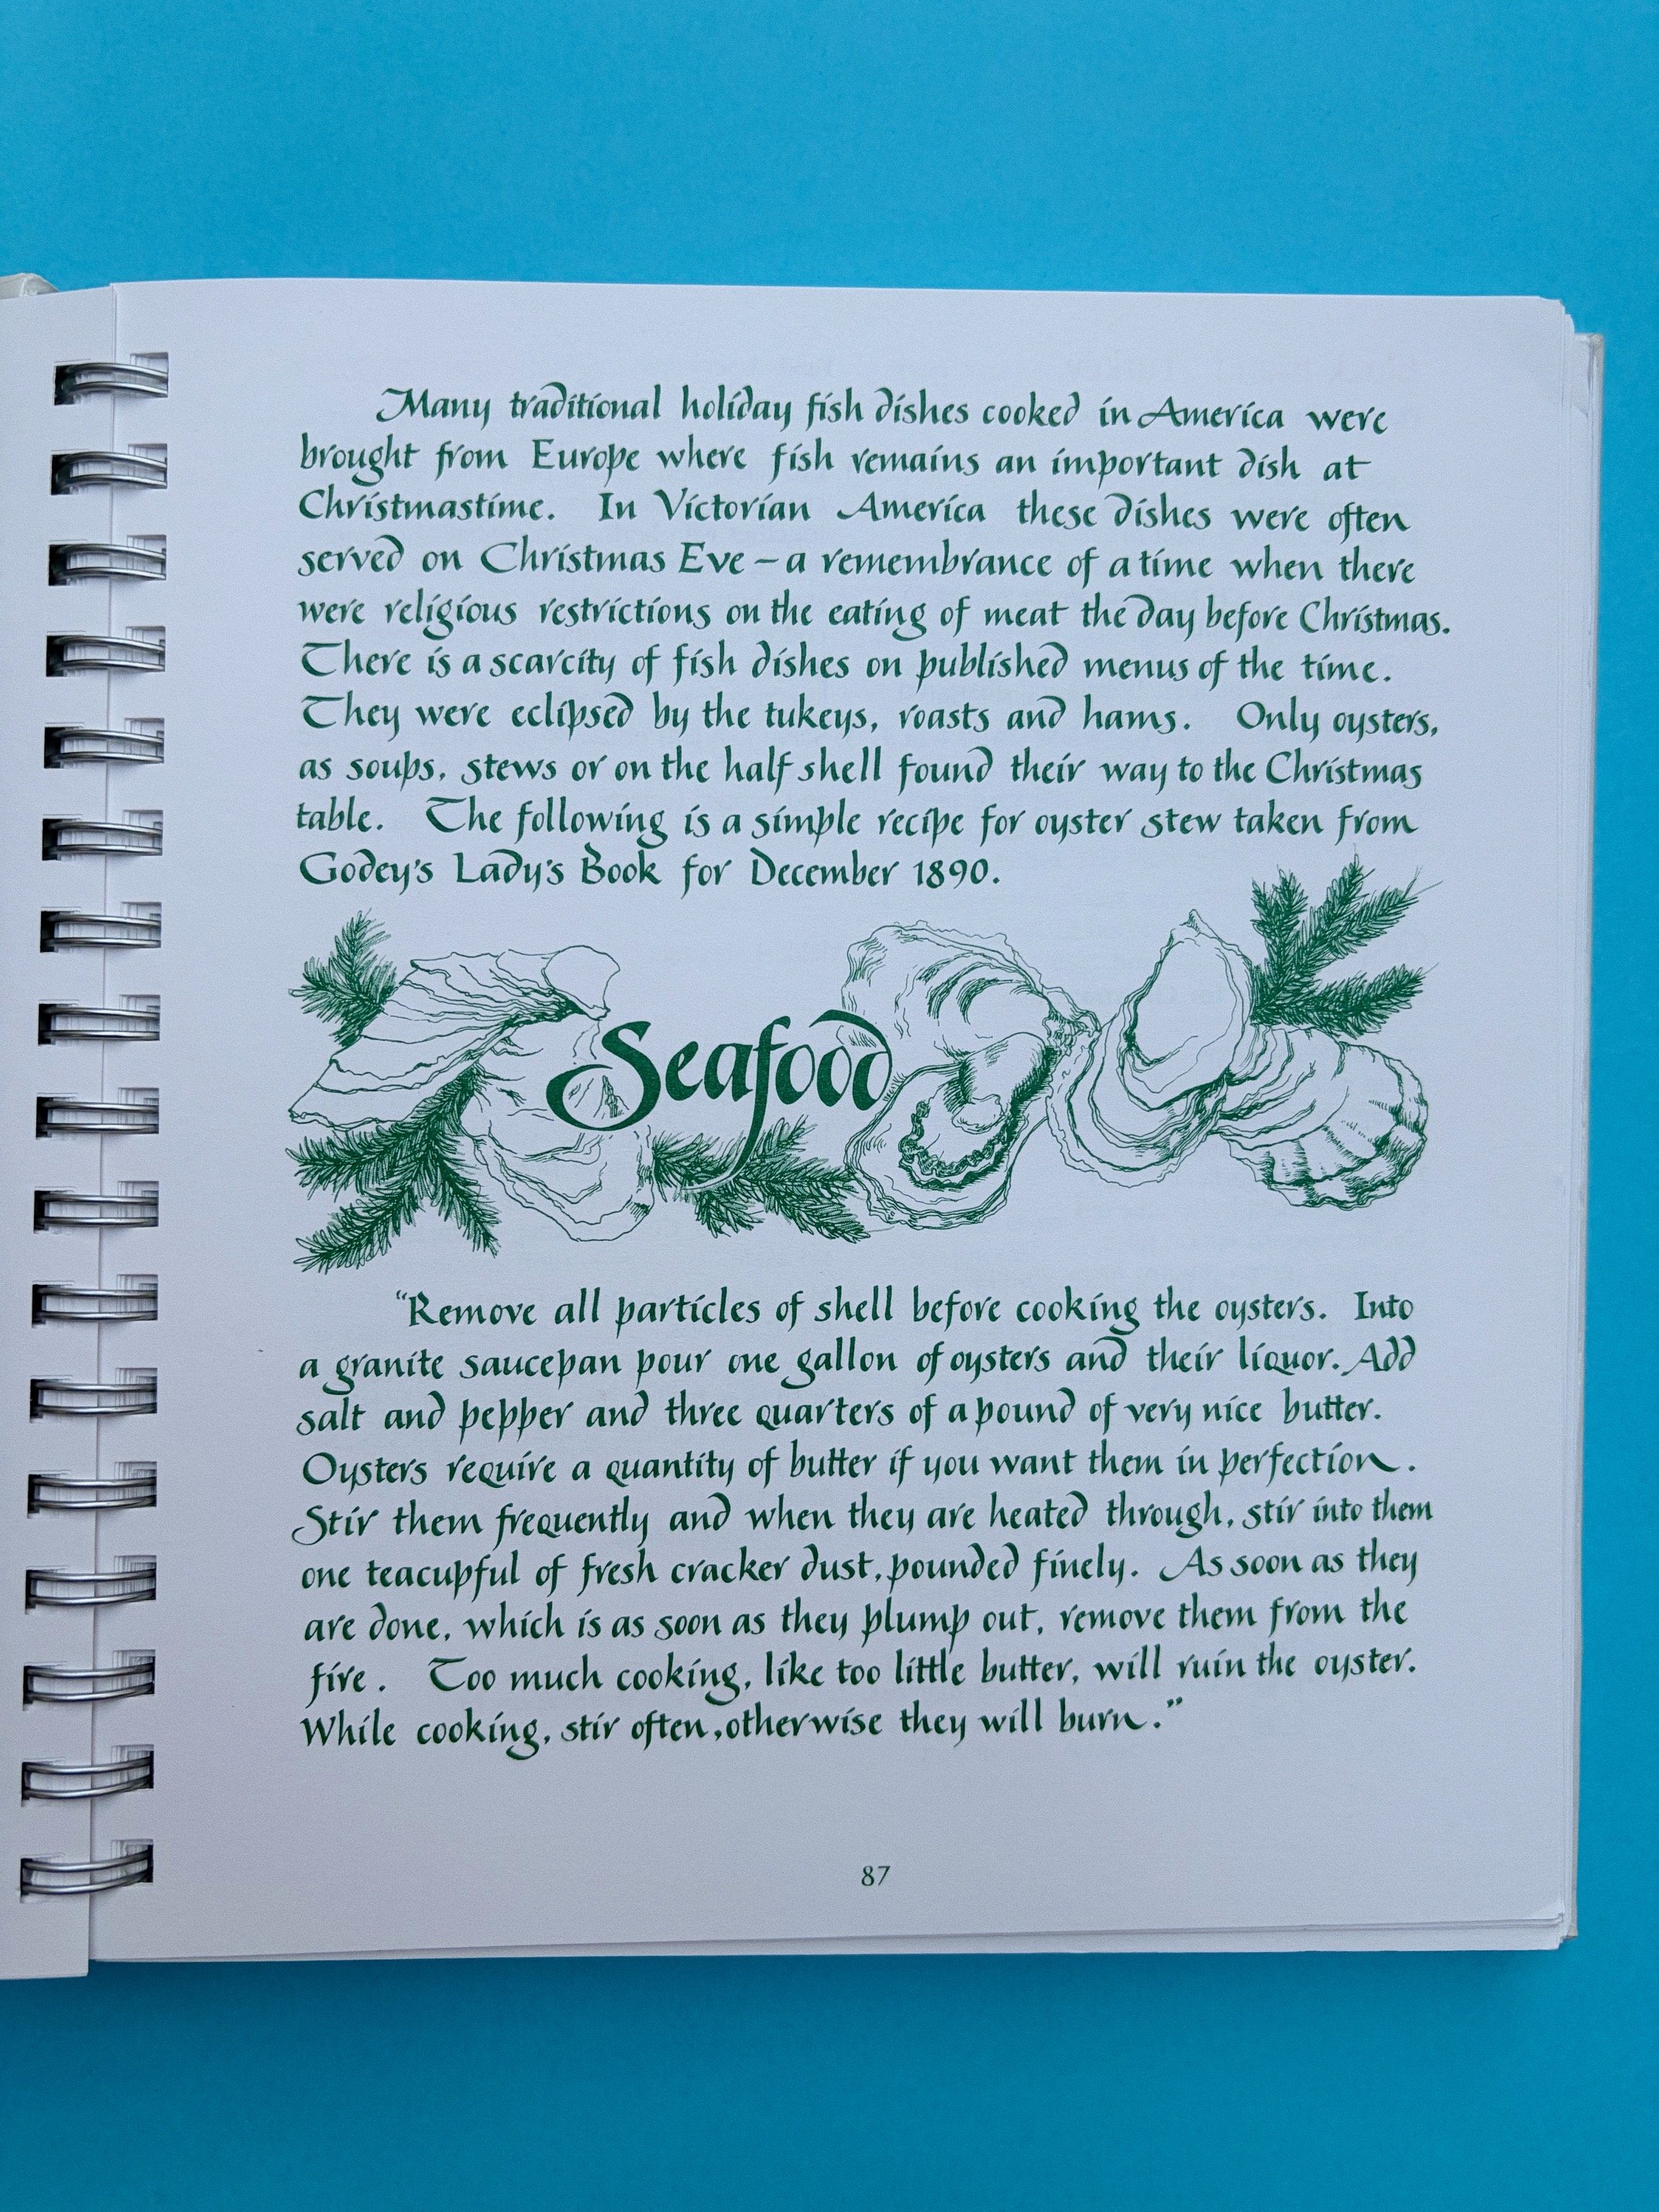 Many traditional holiday fish dishes cooked in America were
brought from Europe where fish remains an important dish at
Christmastime. In Victorian America these dishes were often
served on Christmas Eve – a remembrance of a time when there
were religious restrictions on the eating of meat the day before Christmas.
There is a scarcity of fish dishes on published menus of the time.
They were eclipsed by the tukeys, roasts and hams. Only oysters,
as soups, stews or on the half shell found their way to the Christmas
table. The following is a simple recipe for oyster stew taken from
Godey's Lady's Book for December 1890.
Seafood
“Remove all particles of shell before cooking the oysters. Into
a granite saucepan pour one gallon of oysters and their liquor. Add
salt and pepper and three quarters of a pound of very nice butter.
Oysters require a quantity of butter if you want them in perfection.
Stir them frequently and when they are heated through, stir into them
one teacupful of fresh cracker dust, pounded finely. As soon as they
are done, which is as soon as they plump out, remove them from the
fire. Too much cooking, like too little butter, will ruin the oyster.
While cooking, stir often, otherwise they will burn.”
87